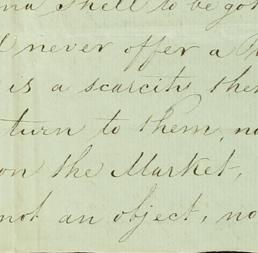 shell to be go
never offer a
is a scarcity the
turn to them, no
on the Market,
not an object, no